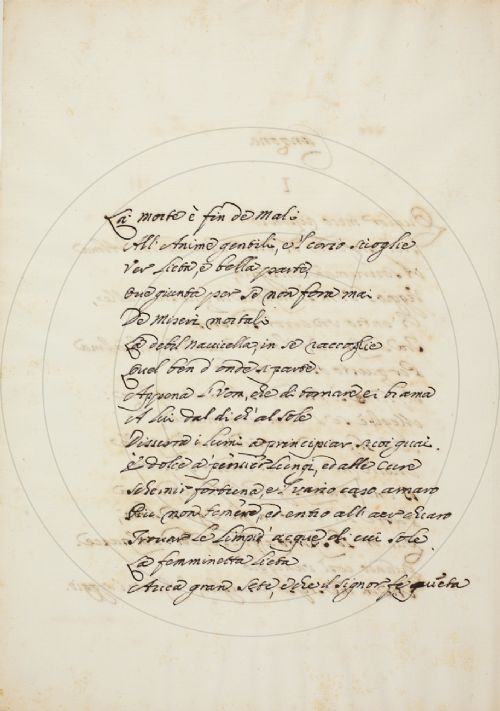 La morte è fin de Mali
All' Anime gentili, e'l corso scioglie
Ver lieta e bella parte,
Oue giunta per se non fora mai
De Miseri mortali
La debil Nauicella, in se raccoglie
Quel ben d'onde si parte
Appena l'Uom, che di tornare ei brama
A lui dal di ch'al sole
Disserra i lumi a principiar suoi guai.
E' dolce a' pensier lungi, ed alle Cure
Schernir fortuna, e'l uario caso amaro
Piu non temere, ed entro all' aer chiaro
Trouar le limpid' acque di cui sole
La femminetta lieta
Auea gran sete, e che il Signor fe' queta